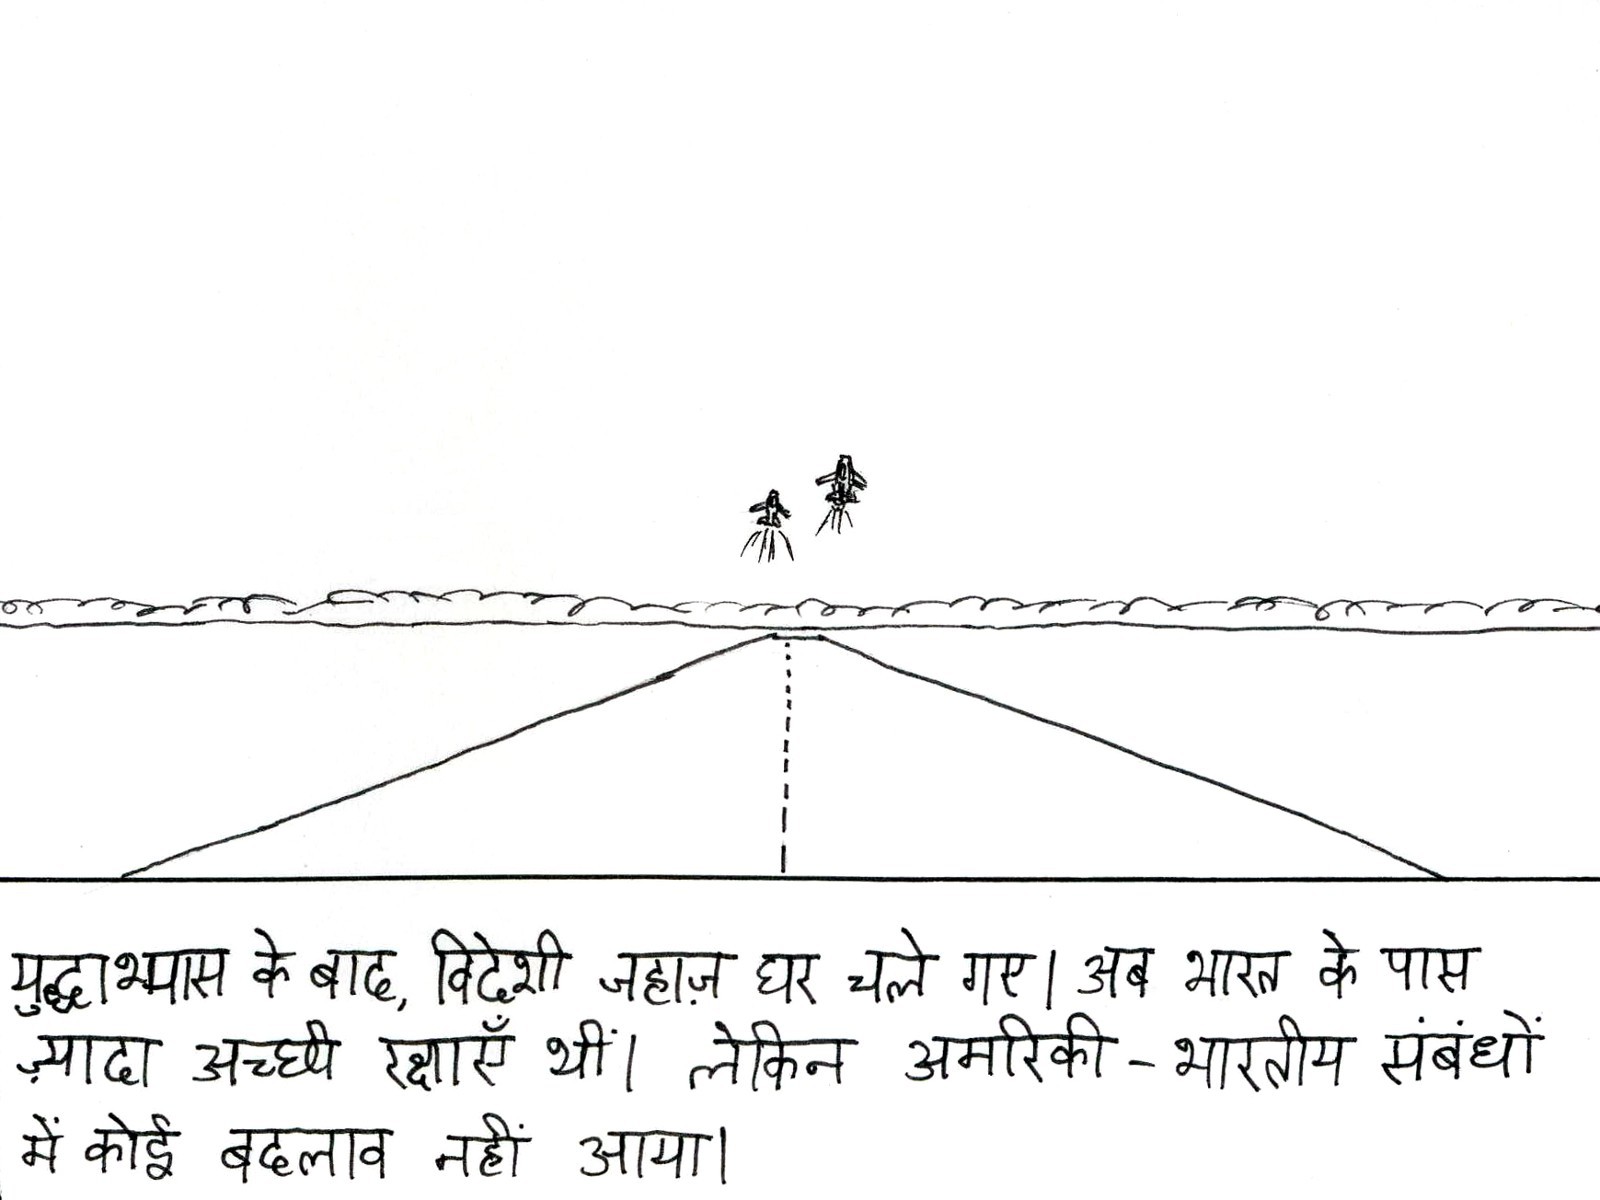 युद्धाभ्यास के बाद, विदेशी जहाज़ घर चले गए। अब भारत के पास
ज़्यादा अच्छी रक्षाएँ थीं। लेकिन अमरिकी - भारतीय संबंधों
में कोई बदलाव नहीं आया।